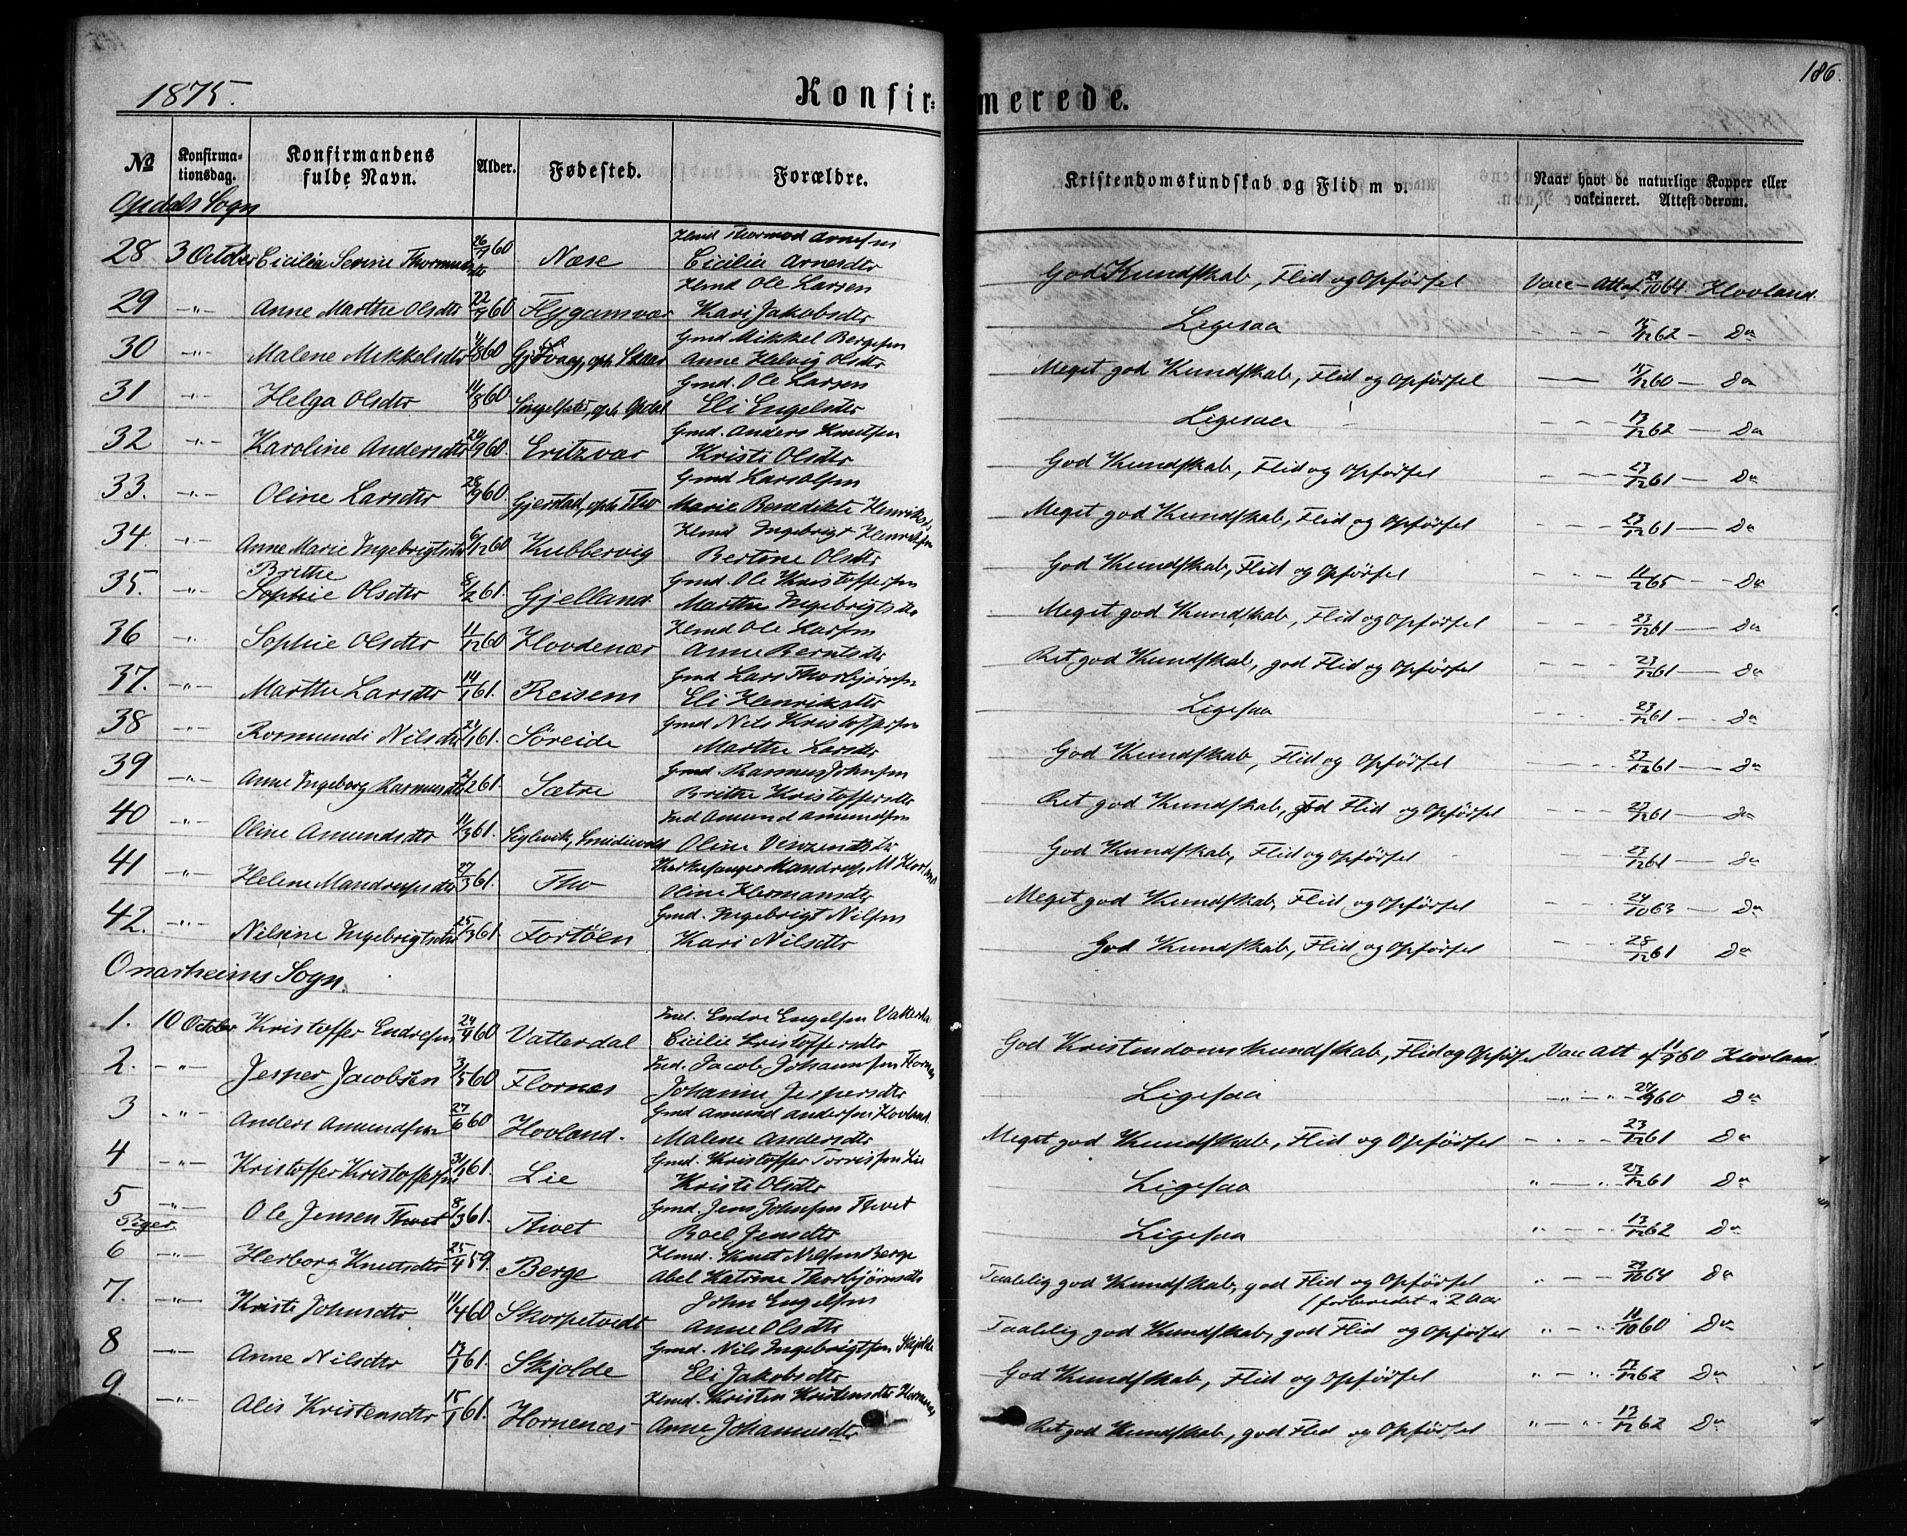 1875.
Konfir-
merede.
186.
No
Konfirma-
tionsdag.
Konfirmandens
fulde Navn.
Alder.
Fødested.
Forældre.
Kristendomskundskab og Flid m v.
Naar havt de naturlige Kopper eller
vakcineret. Attest derom.
Opdals Sogn
28 3 October Cicilia Severine 26/9 60 Næse Hmd Thormod Arnesen Cicilia Arnesdtr God Kundskab, Flid og Opførsel Vacc- Att af 29/10 64. Hovland.
29 -"- Anne Marthe Olsdtr 22/9 60 Flygansvær Hmd Ole Larsen Kari Jakobsdtr Ligesaa - - - 62 - Do
30 -"- Malene Mikkelsdtr 60 Gmd Mikkel Bergesen Anne Helvig Olsdtr Meget god Kundskab, Flid og Opførsel 60 - Do
31 -"- Helga Olsdtr 14/8 60 Gmd. Ole Larsen Eli Engelsdtr Ligesaa - - - 13/12 62 - Do
32 -"- Karoline Andersdtr 60. Eritzvær Gmd. Anders Knutsen Kristi Olsdtr God Kundskab, Flid og Opførsel - - - 23/12 61 - Do
33. -"- Oline Larsdtr 28/9 60. Gjerstad, oph. Tho Gmd Lars Olsen Marie Benedikte Henriksdtr Meget god Kundskab, Flid og Opførsel - - - 23/12 61 - Do
34. -"- Anne Marie Ingebrigtsdtr 6/12 60 Kubbervig Hmd Ingebrigt Henriksen Bertine Olsdtr God Kundskab, Flid og Opførsel - - - 65 - Do
35. -"- Brithe Sophie Olsdtr 8/2 61. Gjelland Gmd. Ole Kristoffersen Marthe Ingebrigtsdtr Meget god Kundskab, Flid og Opførsel - - - 23/12 61 - Do
36 -"- Sophie Olsdtr 11/12 60 Hovdenær Hmd Ole Larsen Anne Berntsdtr Ret god Kundskab, god Flid og Opførsel - - - 23/12 61 - Do
37. -"- Marthe Larsdtr 14/1 61. Reisem Gmd Lars Thorbjørnsen Eli Henriksdtr Ligesaa - - - 23/12 61 - Do
38 -"- Rosmundi Nilsdtr 24/1 61. Søreide Gmd Nils Kristoffersen Marthe Larsdtr God Kundskab, Flid og Opførsel - - - 23/12 61 - Do
39 -"- Anne Ingeborg Rasmusdtr 2/2 61. Sætre Gmd. Rasmus Johnsen Brithe Kristoffersdtr Ret god Kundskab, god Flid og Opførsel - - - 23/12 61 - Do
40 -"- Oline Amundsdtr 11/3 61. Ind Amund Amundsen Oline Vinzentsdtr God Kundskab, Flid og Opførsel - - - 23/12 61 - Do
41 -"- Helene Mandrupsdtr 27/3 61. Tho Kirkesanger Mandrup M. Hovland Oline Hermansdtr Meget god Kundskab, Flid og Opførsel - - - 24/10 63 - Do
42. -"- Nilsine Ingebrigtsdtr 25/3 61. Fortøen Gmd. Ingebrigt Nilsen Kari Nilsdtr God Kundskab, Flid og Opførsel - - - 28/12 61 Do
Onarheims Sogn.
1. 10 October Kristoffer Endresen 24/4 60 Vatterdal Ind. Endre Engelsen Cicilie Kristoffersdtr God Kristendomskundskab, Flid og Opførsel Vac Att af 60 Hovland.
2. -"- Jesper Jacobsen 3/5 60 Flornæs Ind. Jacob Johannesen Flornæs Johanne Jespersdtr Ligesaa 60 Do
3 -"- Anders Amundsen 27/6 60 Hovland. Gmd Amund Andersen Hovland. Malene Andersdtr Meget god Kundskab, Flid og Opførsel - - - 23/12 61 Do
4 -"- Kristoffer Kristoffersen 31/1 61. Lie Gmd. Kristoffer Torrisen Lie Kristi Olsdtr Ligesaa 23/12 61 Do
5 -"- Ole Jensen Thvet 8/3 61. Thvet Gmd. Jens Johnsen Thvet Roel Jensdtr Ligesaa 13/12 62 Do
Piger.
6 -"- Herborg Knutsdtr 25/4 59. Berge Hmd. Knut Nilsen Berge Abel Katrine Thorbjørnsdtr Taalelig god Kundskab, god Flid og Opførsel (forberedet i 2 Aar 29/10 64 Do
7. -"- Kristi Johnsdtr 11/4 60 Skorpetvedt John Engelsen Anne Olsdtr Taalelig god Kundskab, god Flid og Opførsel 60 Do
8 -"- Anne Nilsdtr 61. Skjolde Gmd. Nils Ingebrigtsen Skjolde Eli Jakobsdtr God Kundskab, Flid og Opførsel 62 Do
9. -"- Alis Kristensdtr 15/1 61. Hornenæs Hmd. Kristen Kristensen Hornenæs Anne Johannesdtr Ret god Kundskab, god Flid og Opførsel 13/12 62 Do